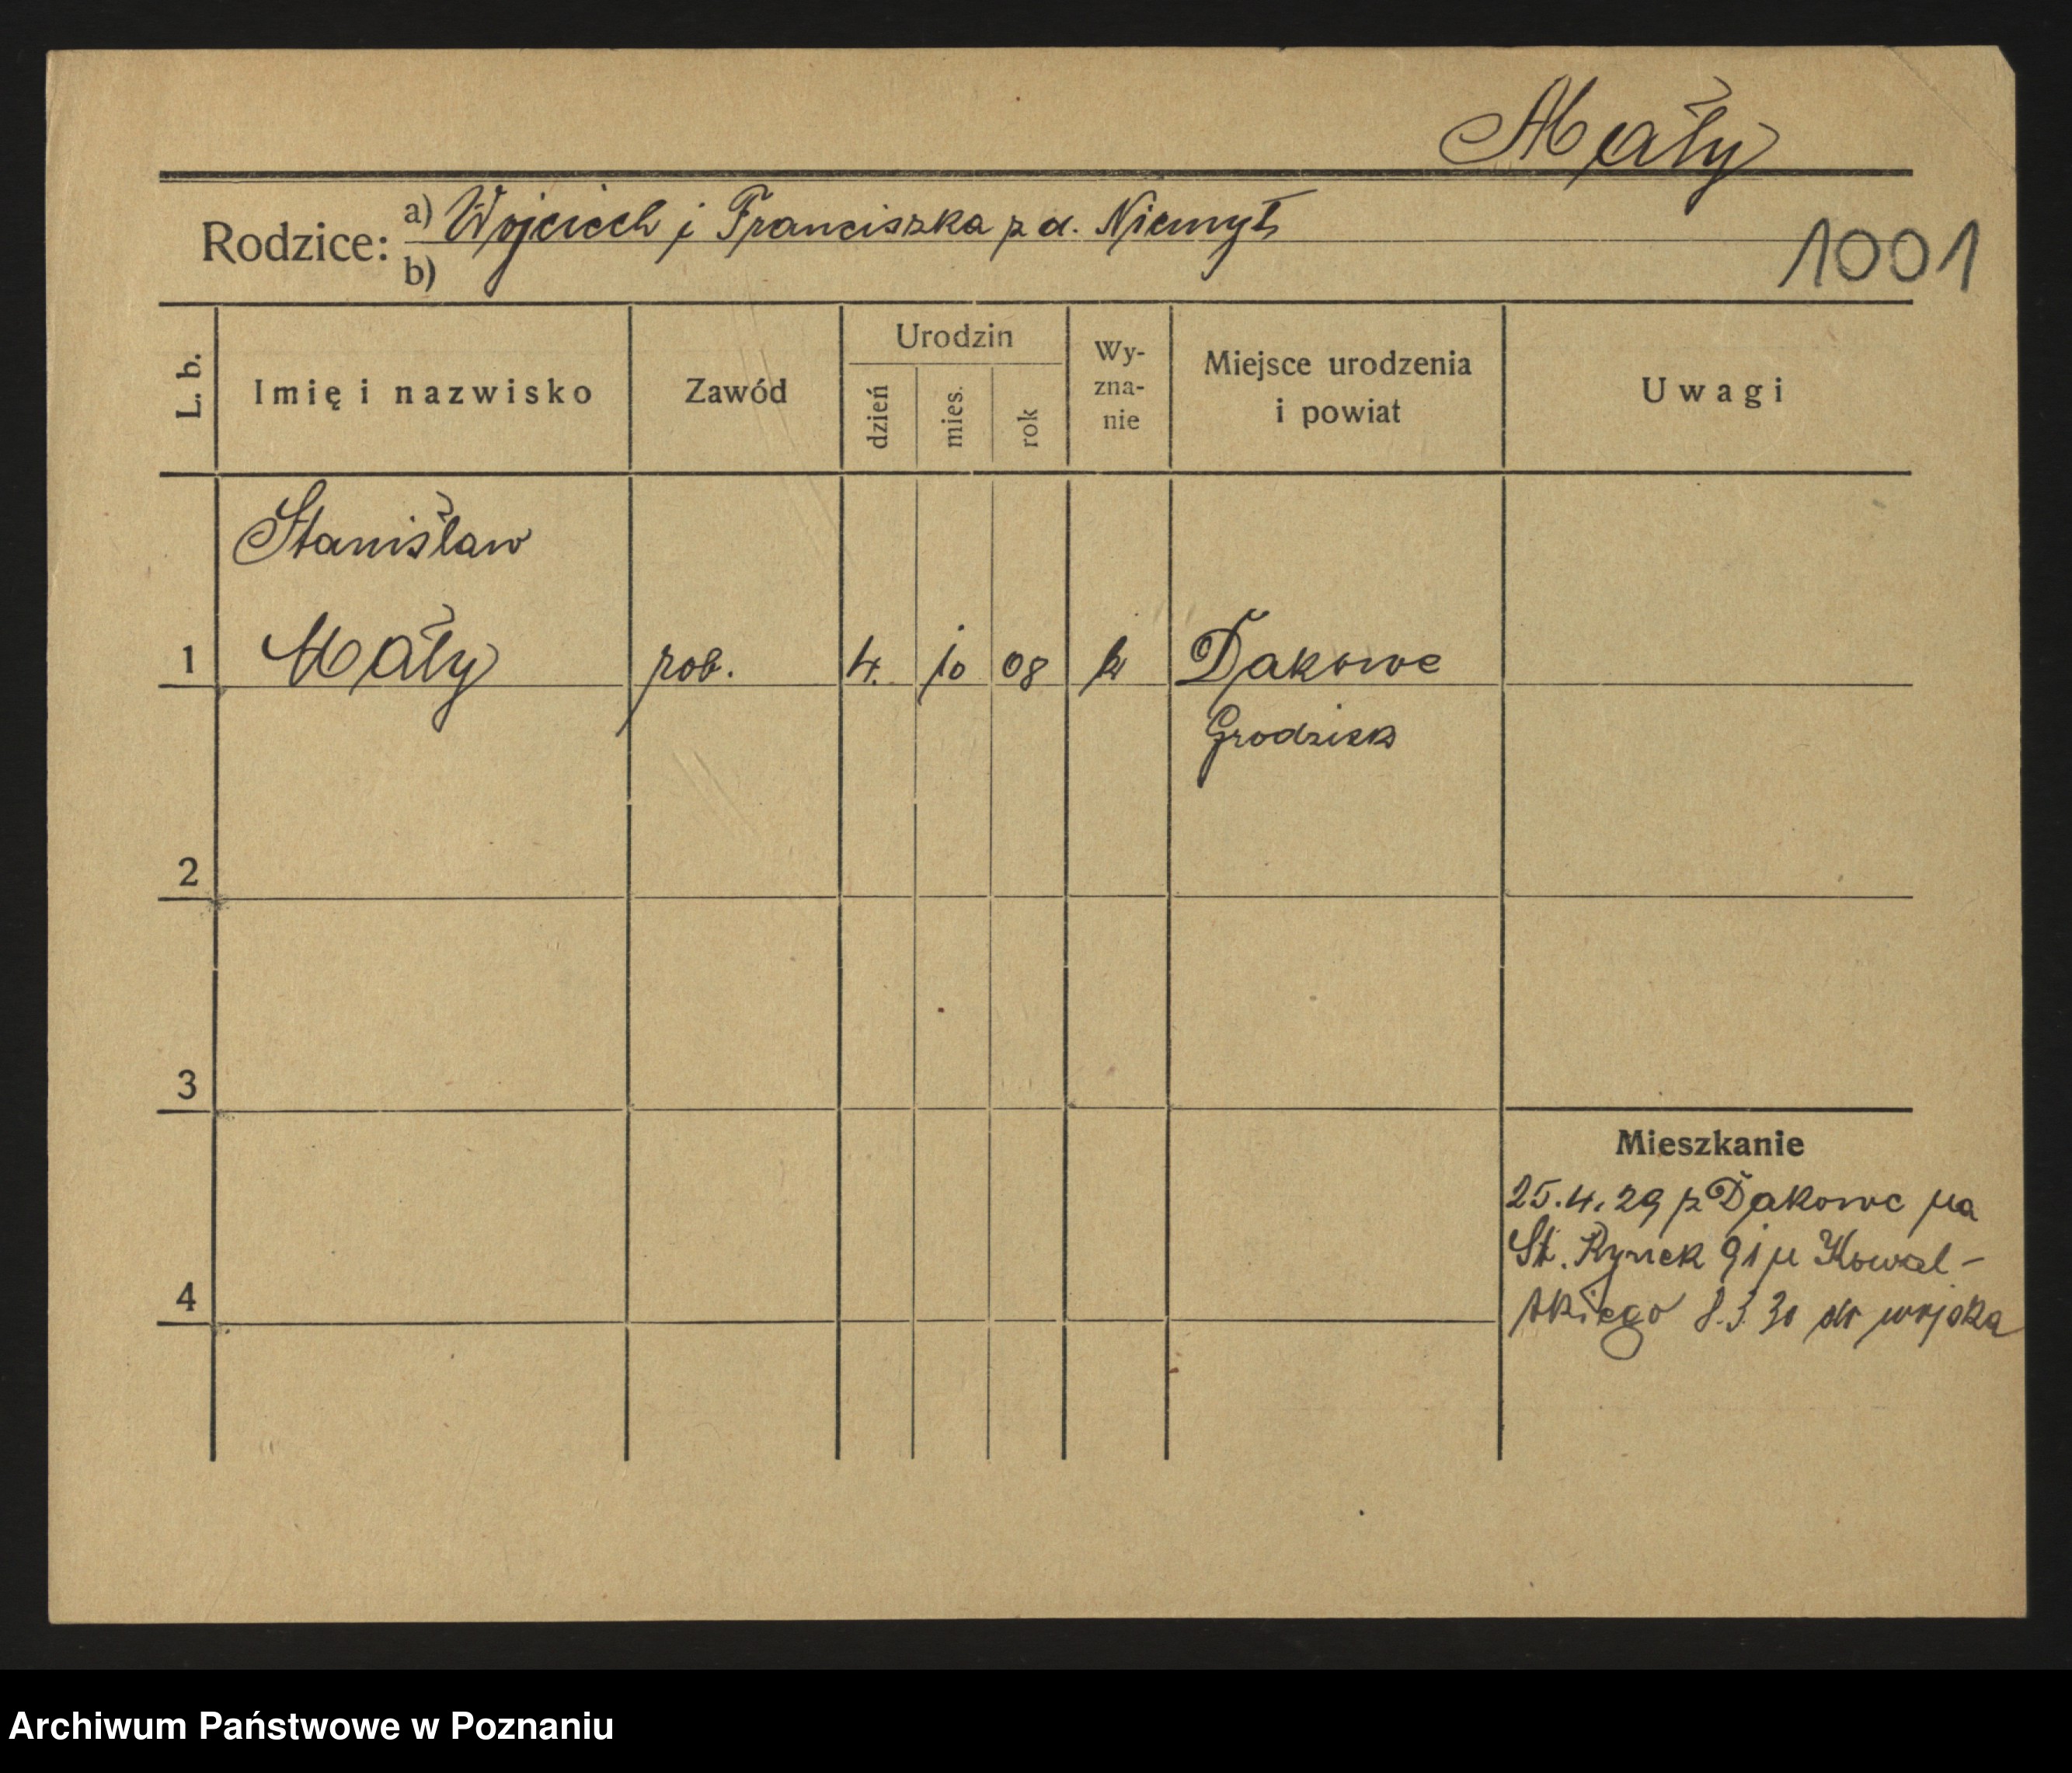 Mały
Rodzice: a) Wojciech i Franciszka z d. Niemyt
b)
1001
L. b.
Imię i nazwisko
Zawód
Urodzin
dzień
mies.
rok
Wy-
zna-
nie
Miejsce urodzenia
i powiat
Uwagi
Stanisław
1 Mały rob. 4. 10 08 k Dakowe
Grodzisk
2
3
4
Mieszkanie
25.4.29 z Dakowe na
St. Rynek 91 u Kowal-
skiego 8.3.30 do wojska
Archiwum Państwowe w Poznaniu